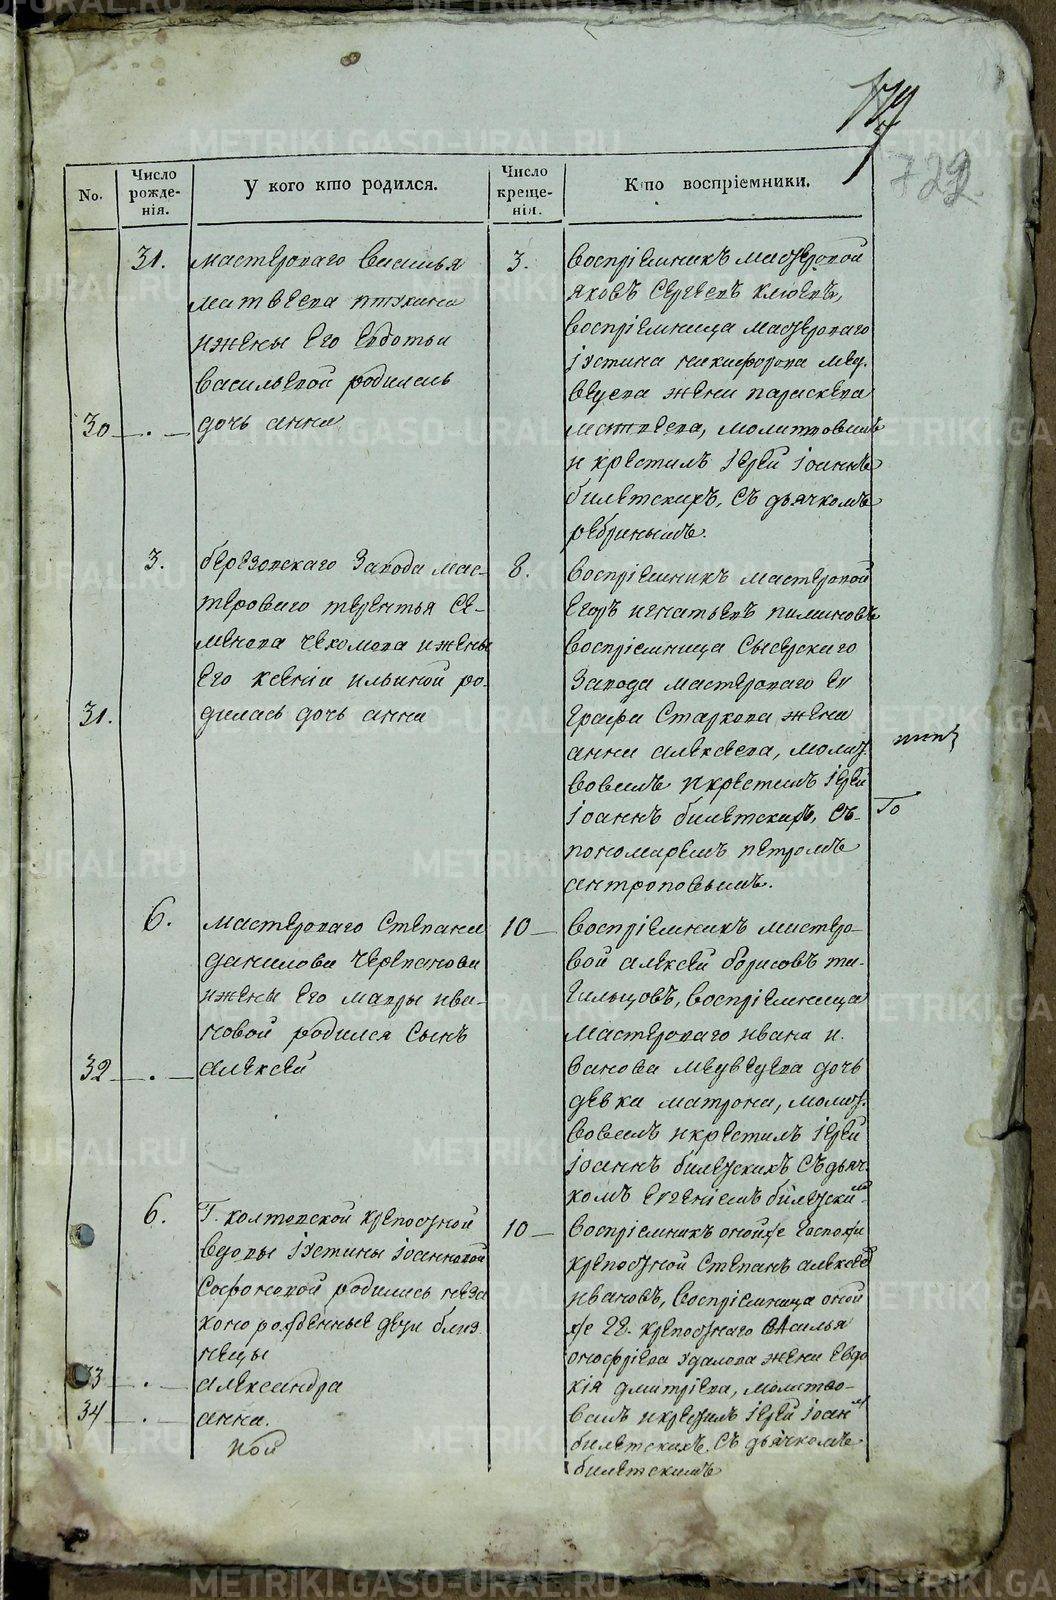 179
7
729
No.
Число рожде-нія.
У кого кто родился.
Число креще-нія.
Кто воспріемники.
31.
мастероваго василья
матвеева птухина
ижены его евдотьи
васильевой родилась
30
дочь анна
3.
воспріемникъ мастеровой
яковъ сергеевъ клюевъ,
воспріемница мастероваго
іустина никифорова мед.
ведева жена параскева
матвеева, молитвовалъ
и крестилъ іерей іоаннъ
билетскихъ, съ дьячкомъ
ребриnымъ.
3.
березовскаго завода мас-
тероваго терентья се-
менова чехомова ижены
его ксеніи ильиной ро-
31.
дилась дочь анна
8.
воспріемникъ мастеровой
егоръ игнатьевъ пилиновъ
воспріемница сысерскаго
завода мастероваго ев
графа старкова жена
анна алексеева, молит.
вовалъ икрестилъ іерей
іоаннъ билетскихъ, съ-
пономаремъ петромъ
антроповымъ.
То
6.
мастероваго степана
данилова черепанова
ижены его мавры ива-
новой родился сынъ
32
алексей
10
воспріемникъ мастеро-
вой алексей борисовъ та-
гильцовъ, воспріемница
мастероваго ивана и.
ванова медведева дочь
девка матрона, молит.
вовалъ икрестилъ іерей
іоаннъ билетскихъ съдьяч.
комъ евгеніемъ билетскимъ
6.
Г. колтовской крепостной
вдовы іустины іоанновой
сафоновой родились неза
коно рожденные двои близ
нецы
33
александра
34
анна.
ной
10
воспріемникъ онойже госпожи
крепостной степанъ алексеев
ивановъ, воспріемница оной
же гг. крепостнаго василья
онофріева удалова жена евдо
кія дмитріева, молитво-
валъ икрестилъ іерей іоаннъ
билетскихъ съ дьячкомъ
билетскимъ
METRIKI.GASO-URAL.RU